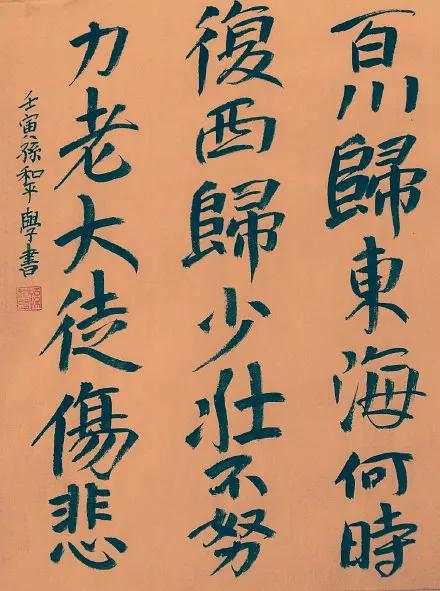 百川歸東海何時
復西歸少壯不努
力老大徒傷悲
壬寅孫和平學書